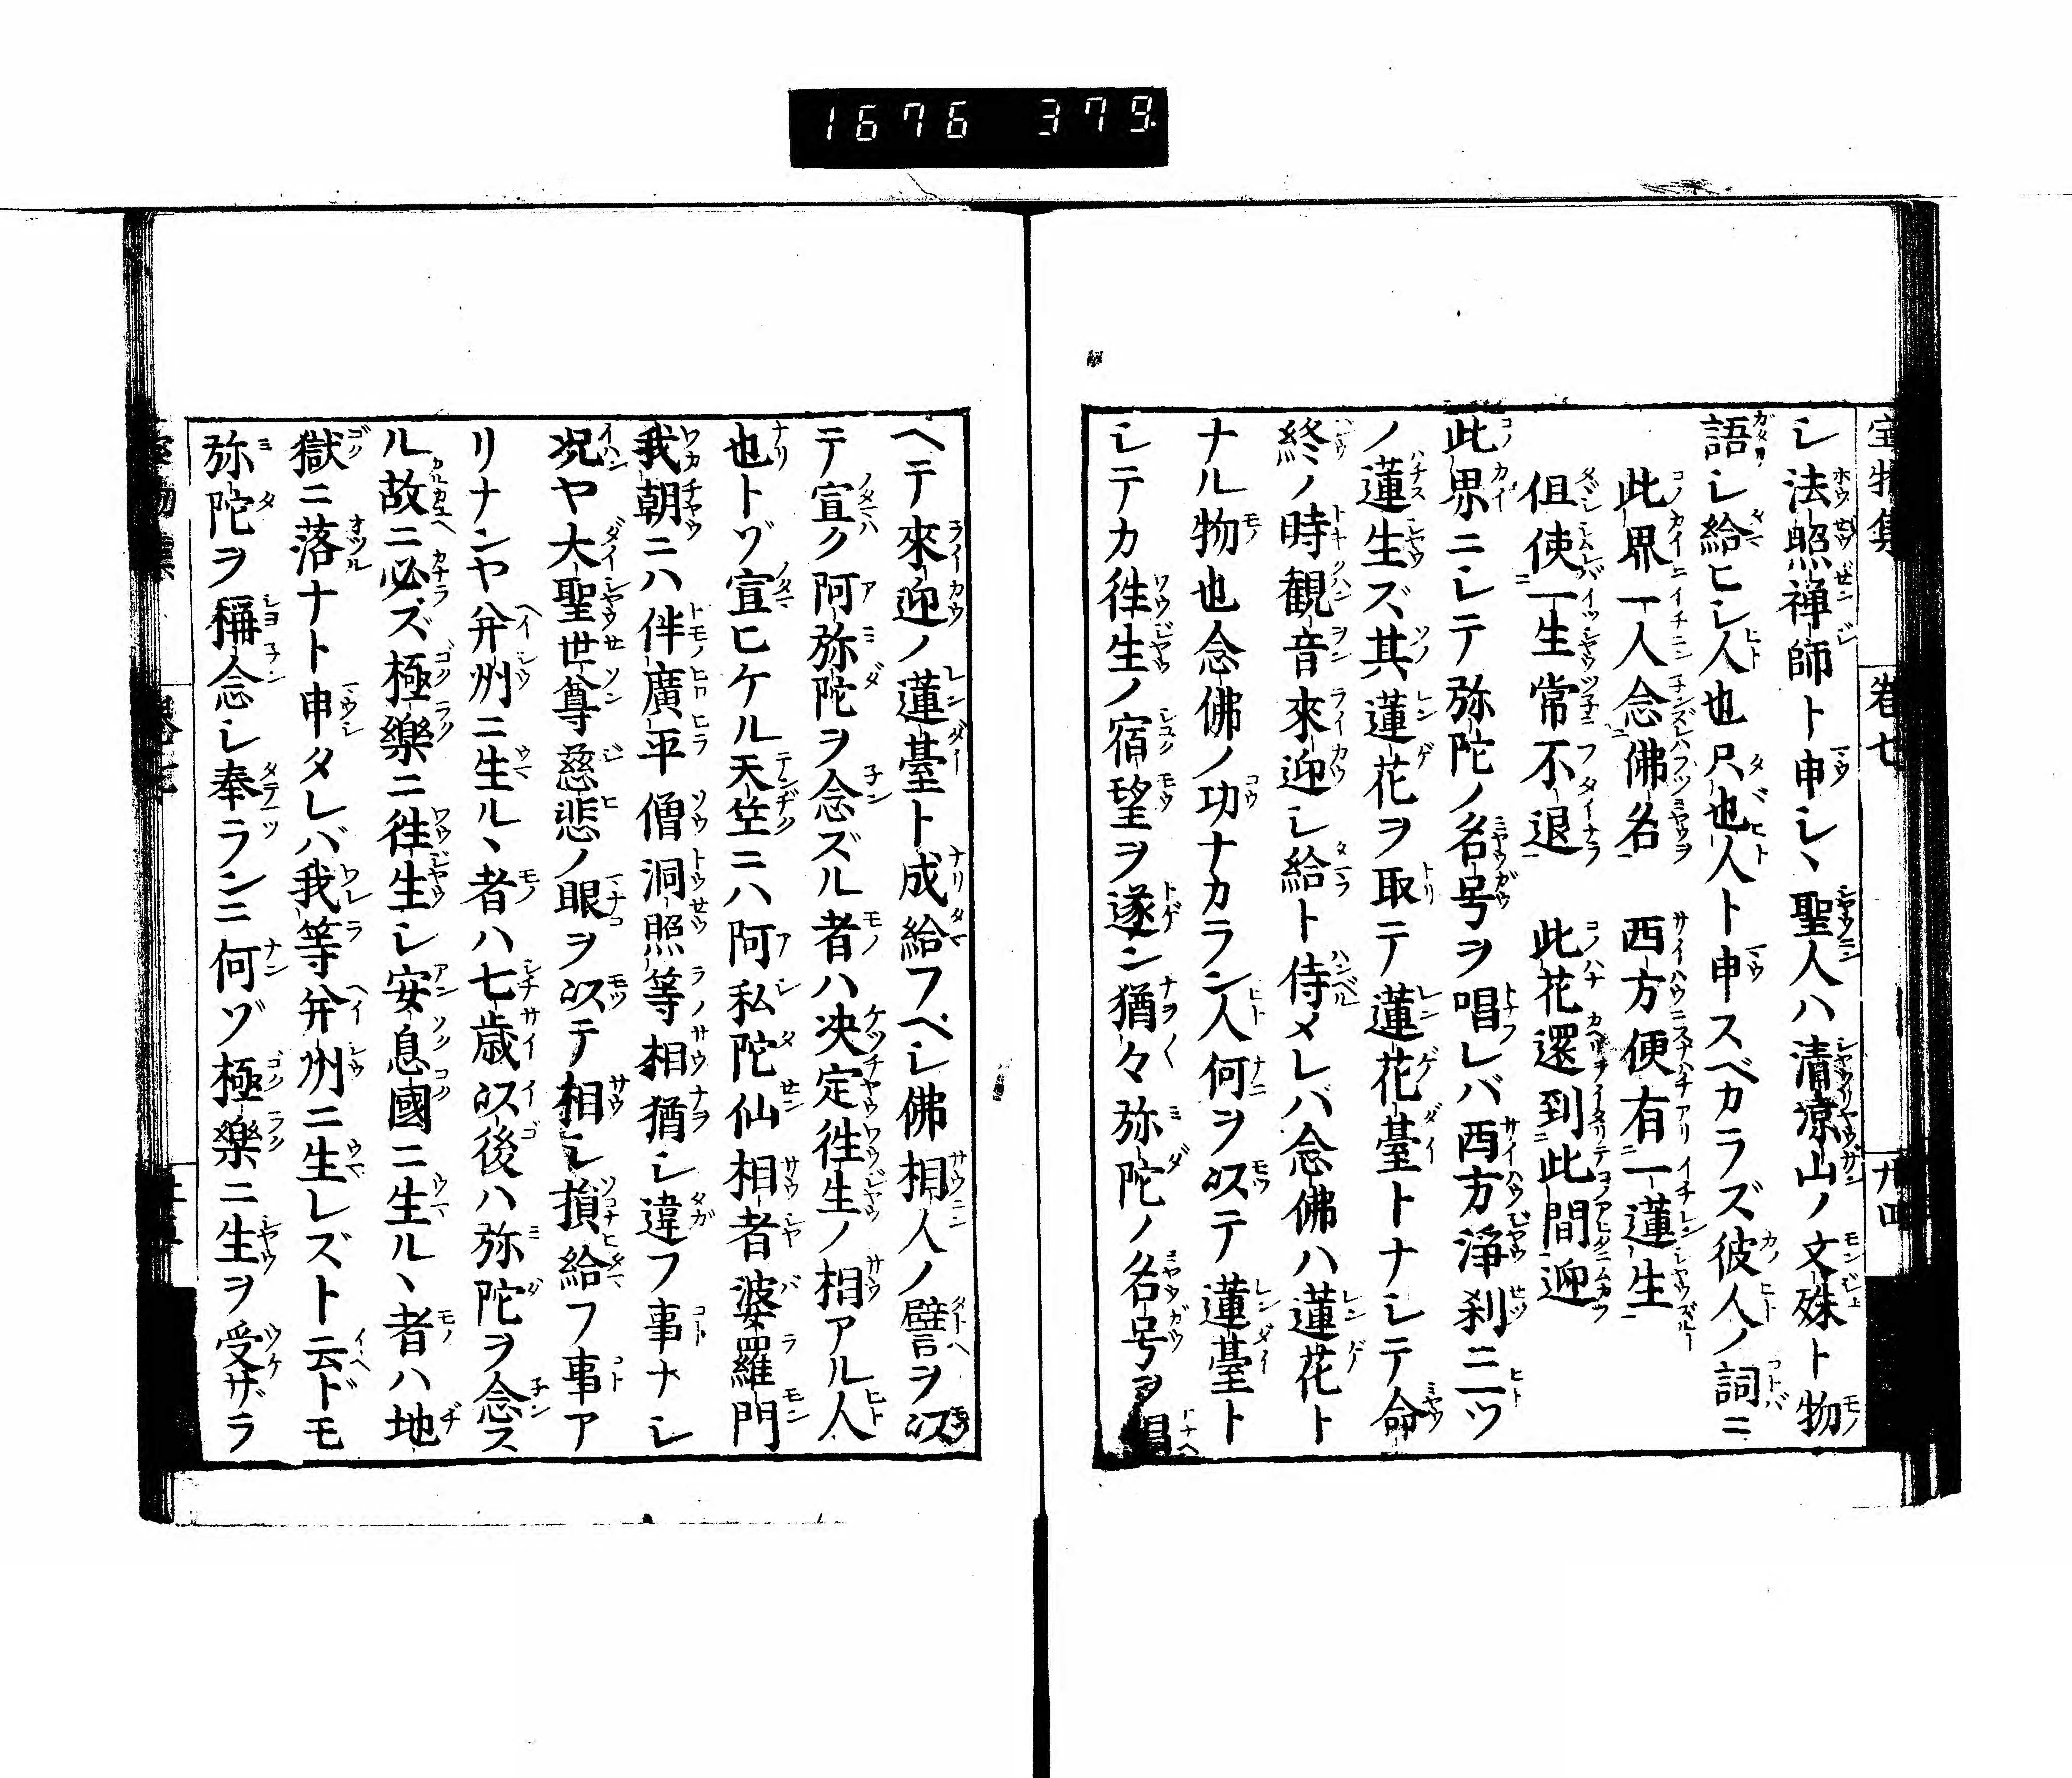 1676 379
宝物集 巻七 九四
シ法照禅師ト申シヽ聖人ハ清凉山ノ文殊ト物
語シ給ヒシ人也只也人ト申スベカラズ彼人ノ詞ニ
此界一人念佛名 西方便有一蓮生
但使一生常不退 此花還到此間迎
此界ニシテ弥陀ノ名号ヲ唱レバ西方淨刹ニ一ツ
ノ蓮生ズ其蓮花ヲ取テ蓮花臺トナシテ命
終ノ時観音來迎シ給ト侍メレバ念佛ハ蓮花ト
ナル物也念佛ノ功ナカラン人何ヲ以テ蓮臺ト
シテカ徃生ノ宿望ヲ遂ン猶々弥陀ノ名号ヲ唱
ヘテ來迎ノ蓮臺ト成給フベシ佛相人ノ譬ヲ以
テ宣ク阿弥陀ヲ念ズル者ハ决定徃生ノ相アル人
也トゾ宣ヒケル天竺ニハ阿私陀仙相者波羅門
我朝ニハ伴廣平僧洞照等相猶シ違フ事ナシ
况ヤ大聖世尊慈悲ノ眼ヲ以テ相シ損給フ事ア
リナンヤ并州ニ生ルヽ者ハ七歳以後ハ弥陀ヲ念ス
ル故ニ必ズ極樂ニ徃生シ安息國ニ生ルヽ者ハ地
獄ニ落ナト申タレバ我等并州ニ生レズト云ドモ
弥陀ヲ稱念シ奉ランニ何ゾ極樂ニ生ヲ受ザラ